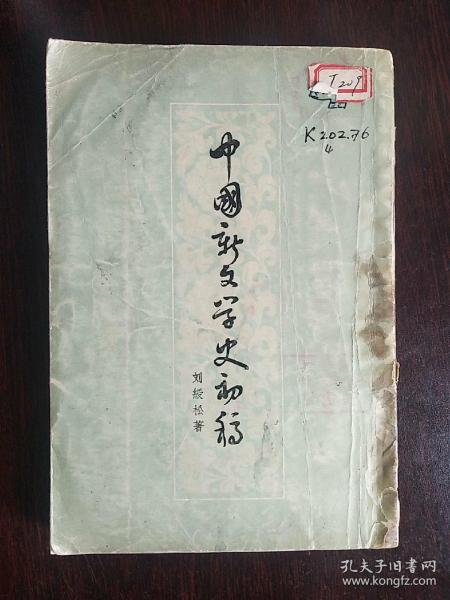 T209
K202.76
4
中國新文学史初稿
刘綬松著
孔夫子旧书网
www.kongfz.com